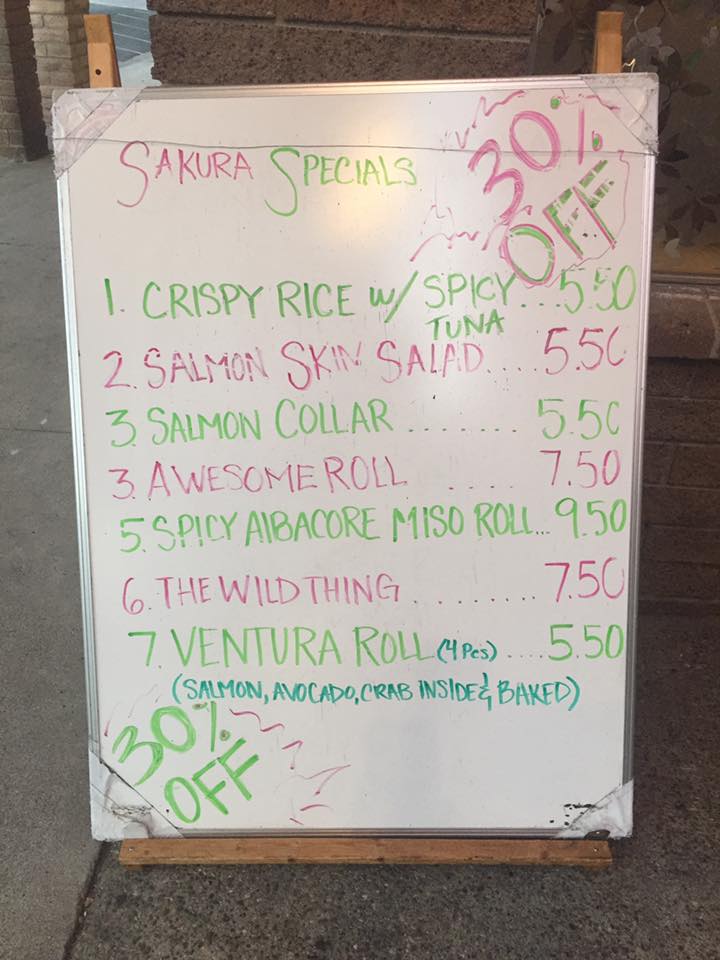 SAKURA SPECIALS
30% OFF
1. CRISPY RICE w/ SPICY TUNA...5.50
2. SALMON SKIN SALAD....5.50
3. SALMON COLLAR ........ 5.50
3. AWESOME ROLL ..... 7.50
5. SPICY AlBACORE MISO ROLL... 9.50
6. THE WILD THING ......... 7.50
7. VENTURA ROLL (4 Pcs) ....5.50
(SALMON, AVOCADO, CRAB INSIDE & BAKED)
30% OFF